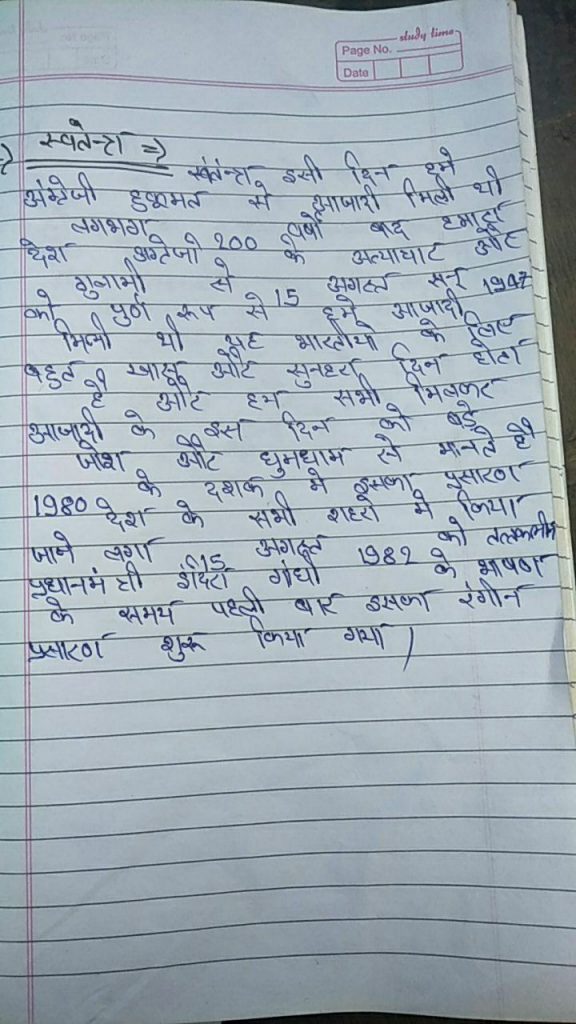 study time
Page No.
Date
=> स्वतंन्त्रा =>
स्वंतंन्त्रा इसी दिन हमे
अंग्रेजी हुकुमत से आजादी मिली थी
लगभग 200 वर्षो बाद हमारा
देश अग्रेजो के अत्याचार और
गुलामी से 15 अगस्त सन् 1947
को पुर्ण रूप से हमे आजादी
मिली थी यह भारतीयो के लिए
बहुत खास और सुनहरा दिन होता
है और हम सभी मिलकर
आजादी के इस दिन को बड़े
जोश और धुमधाम से मानते है
1980 के दशक मे इसका प्रसारण
देश के सभी शहरो मे किया
जाने लगा 15 अगस्त 1982 को तत्कालीन
प्रधानमंत्री इंदिरा गांधी के भाषण
के समय पहली बार इसका रंगीन
प्रसारण शुरू किया गया /